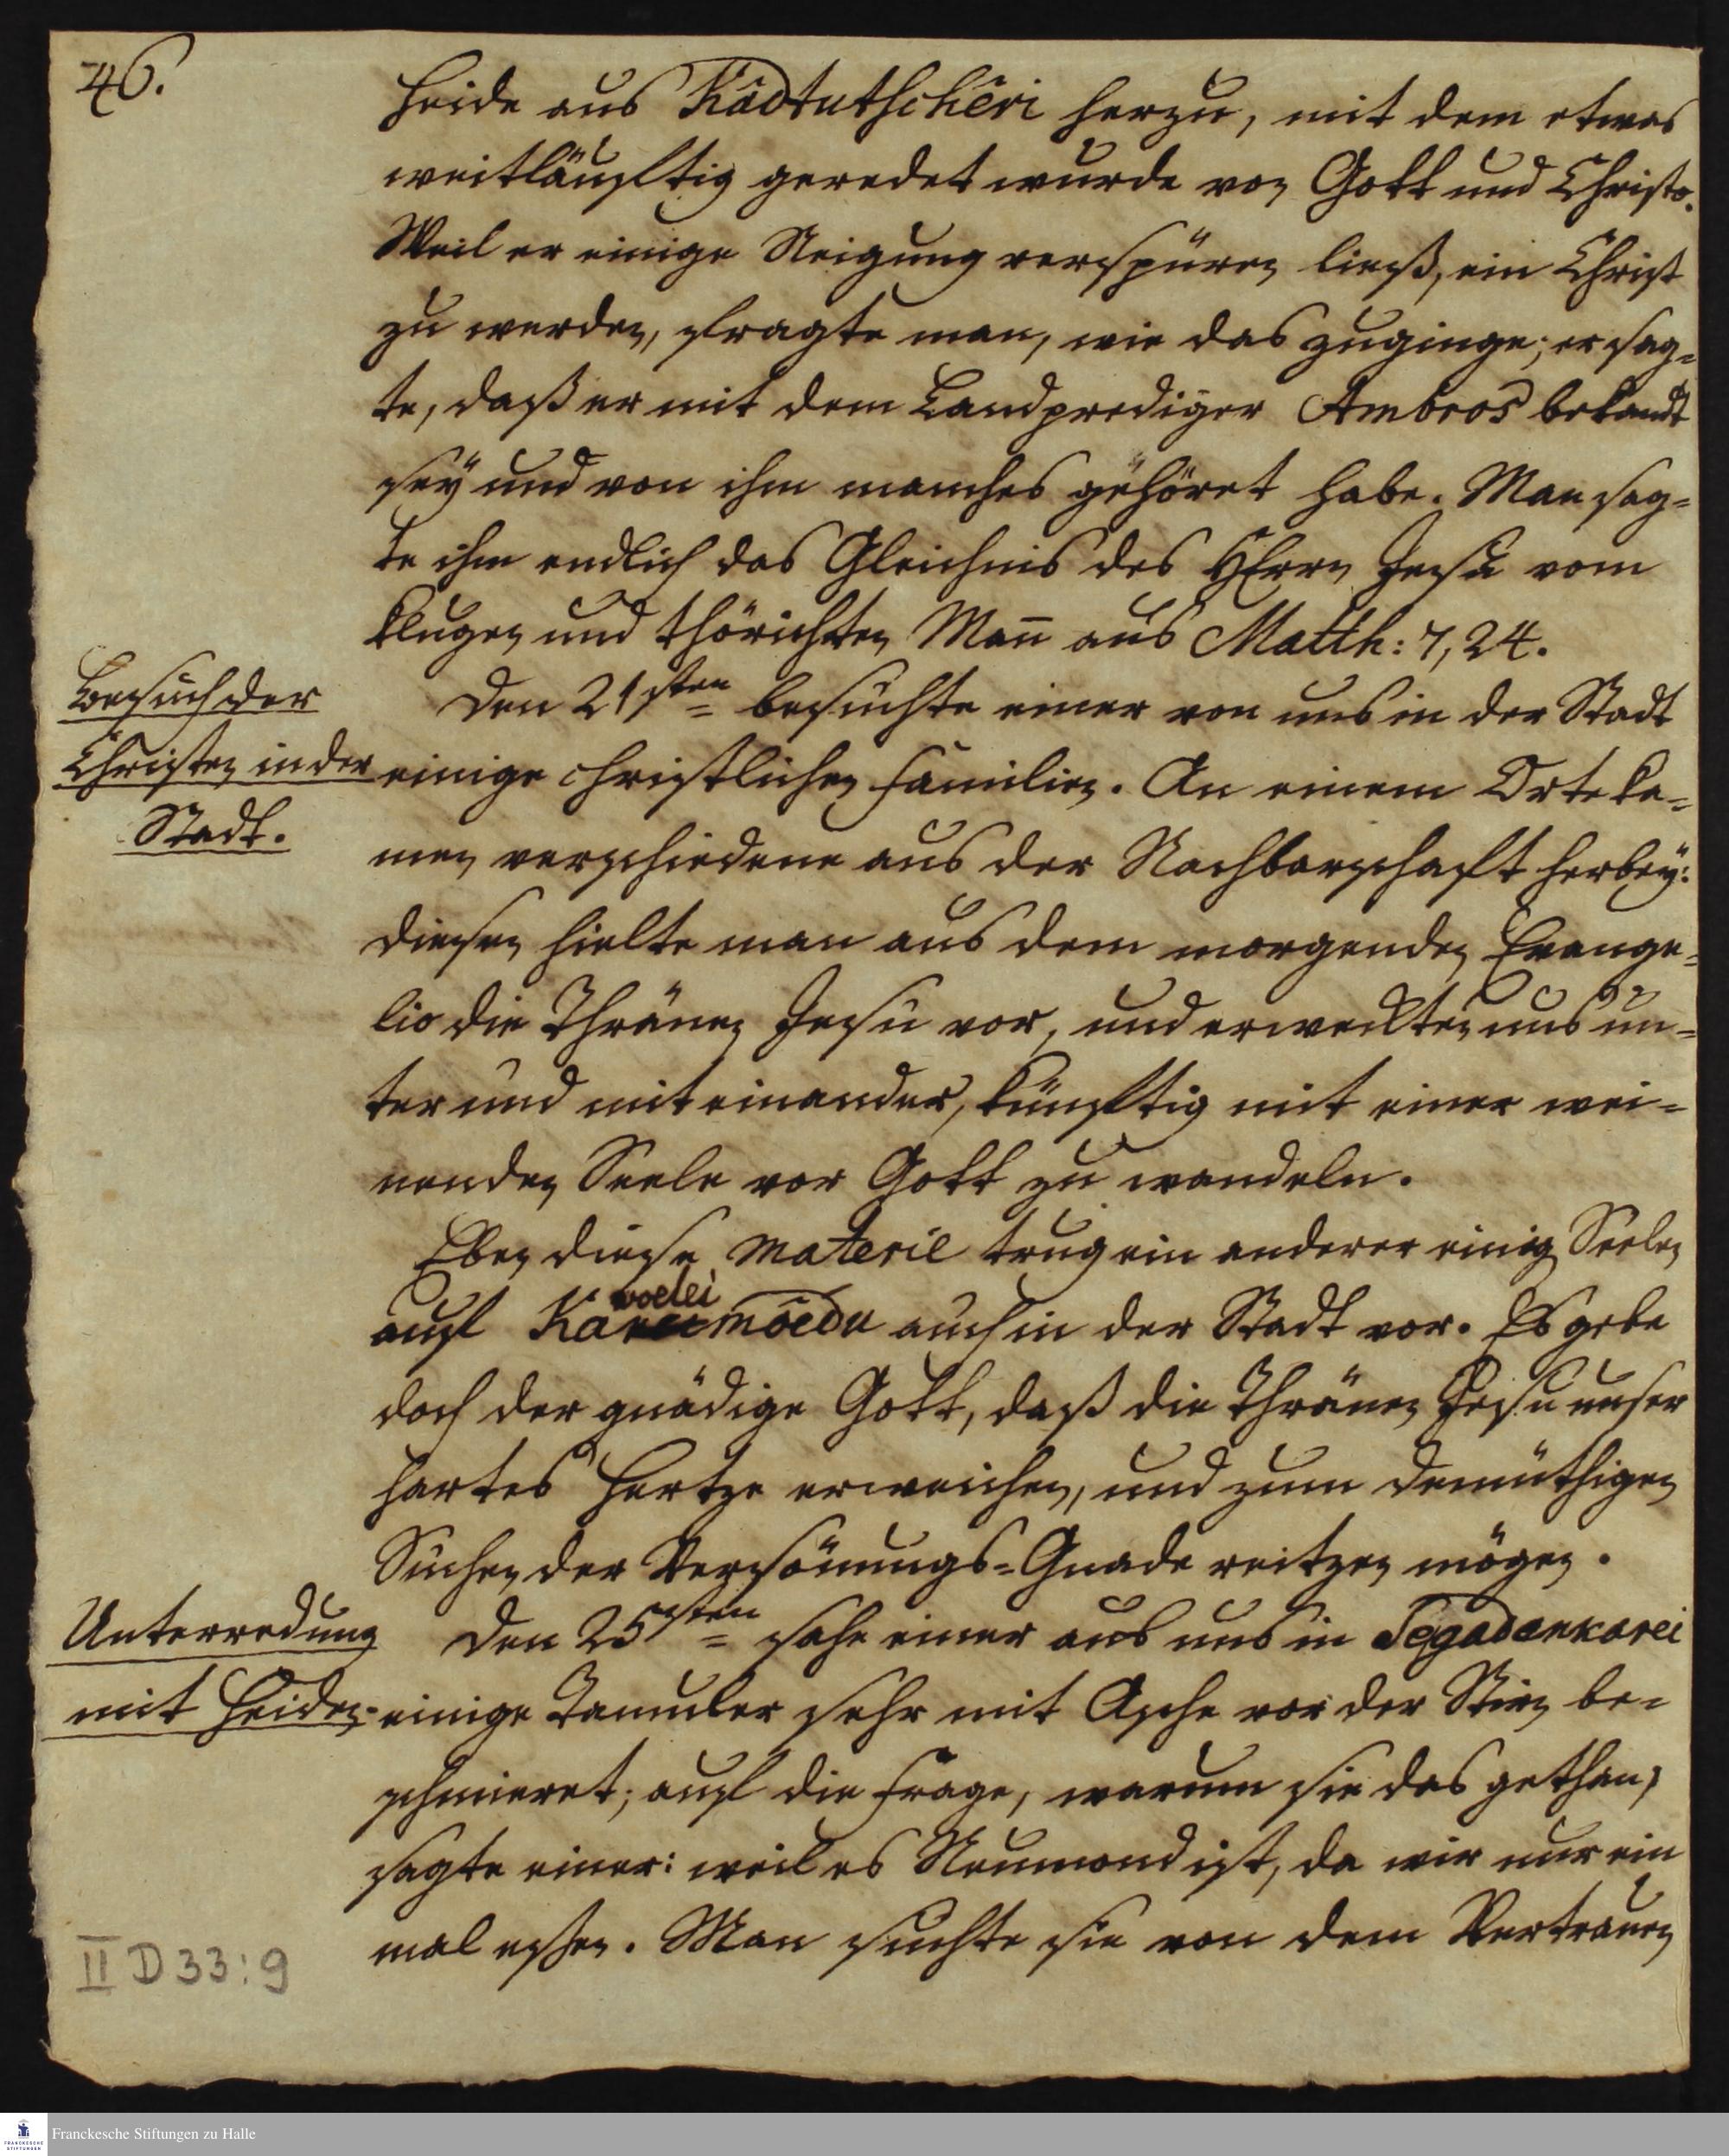 46.
Heide aus Kâdtutschêri herzu, mit dem etwas
weitläuftig geredet wurde von Gott und Christo.
Weil er einige Neigung verspüren ließ, ein Christ
zu werden, fragte man, wie das zuginge; er sag=
te, daß er mit dem Landprediger Ambros bekandt
sey und von ihm manches gehöret habe. Man sag=
te ihm endlich das Gleichnis des HErrn Jesu vom
klugen und thörichten Mañ aus Matth: 7, 24.
Besuch der
Christen in der
Stadt.
Den 21sten besuchte einer von uns in der Stadt
einige christlichen Familien. An einem Orte ka=
men verschiedene aus der Nachbarschaft herbey:
diesen hielte man aus dem morgenden Evange=
lio die Thränen Jesu vor, und erweckten uns un=
ter und mit einander, künftig mit einer wei=
nenden Seele vor Gott zu wandeln.
Eben diese Materie trug ein anderer einig Seelen
auf Karwoeleimôedu auch in der Stadt vor. Es gebe
doch der gnädige Gott, daß die Thränen Jesu unser
hartes Hertze erweichen, und zum demüthigen
Suchen der Versönungs=Gnade reitzen mögen.
Unterredung
mit Heiden.
Den 25sten sahe einer aus uns in Tegadenkarei
einige Tamuler sehr mit Asche vor der Stirn be=
schmieret; auf die Frage, warum sie das gethan,
sagte einer: weil es Neumond ist, da wir nur ein
mal essen. Man suchte sie von dem Vertrauen
II D 33:9
Franckesche Stiftungen zu Halle
FRANCKESCHE
STIFTUNGEN